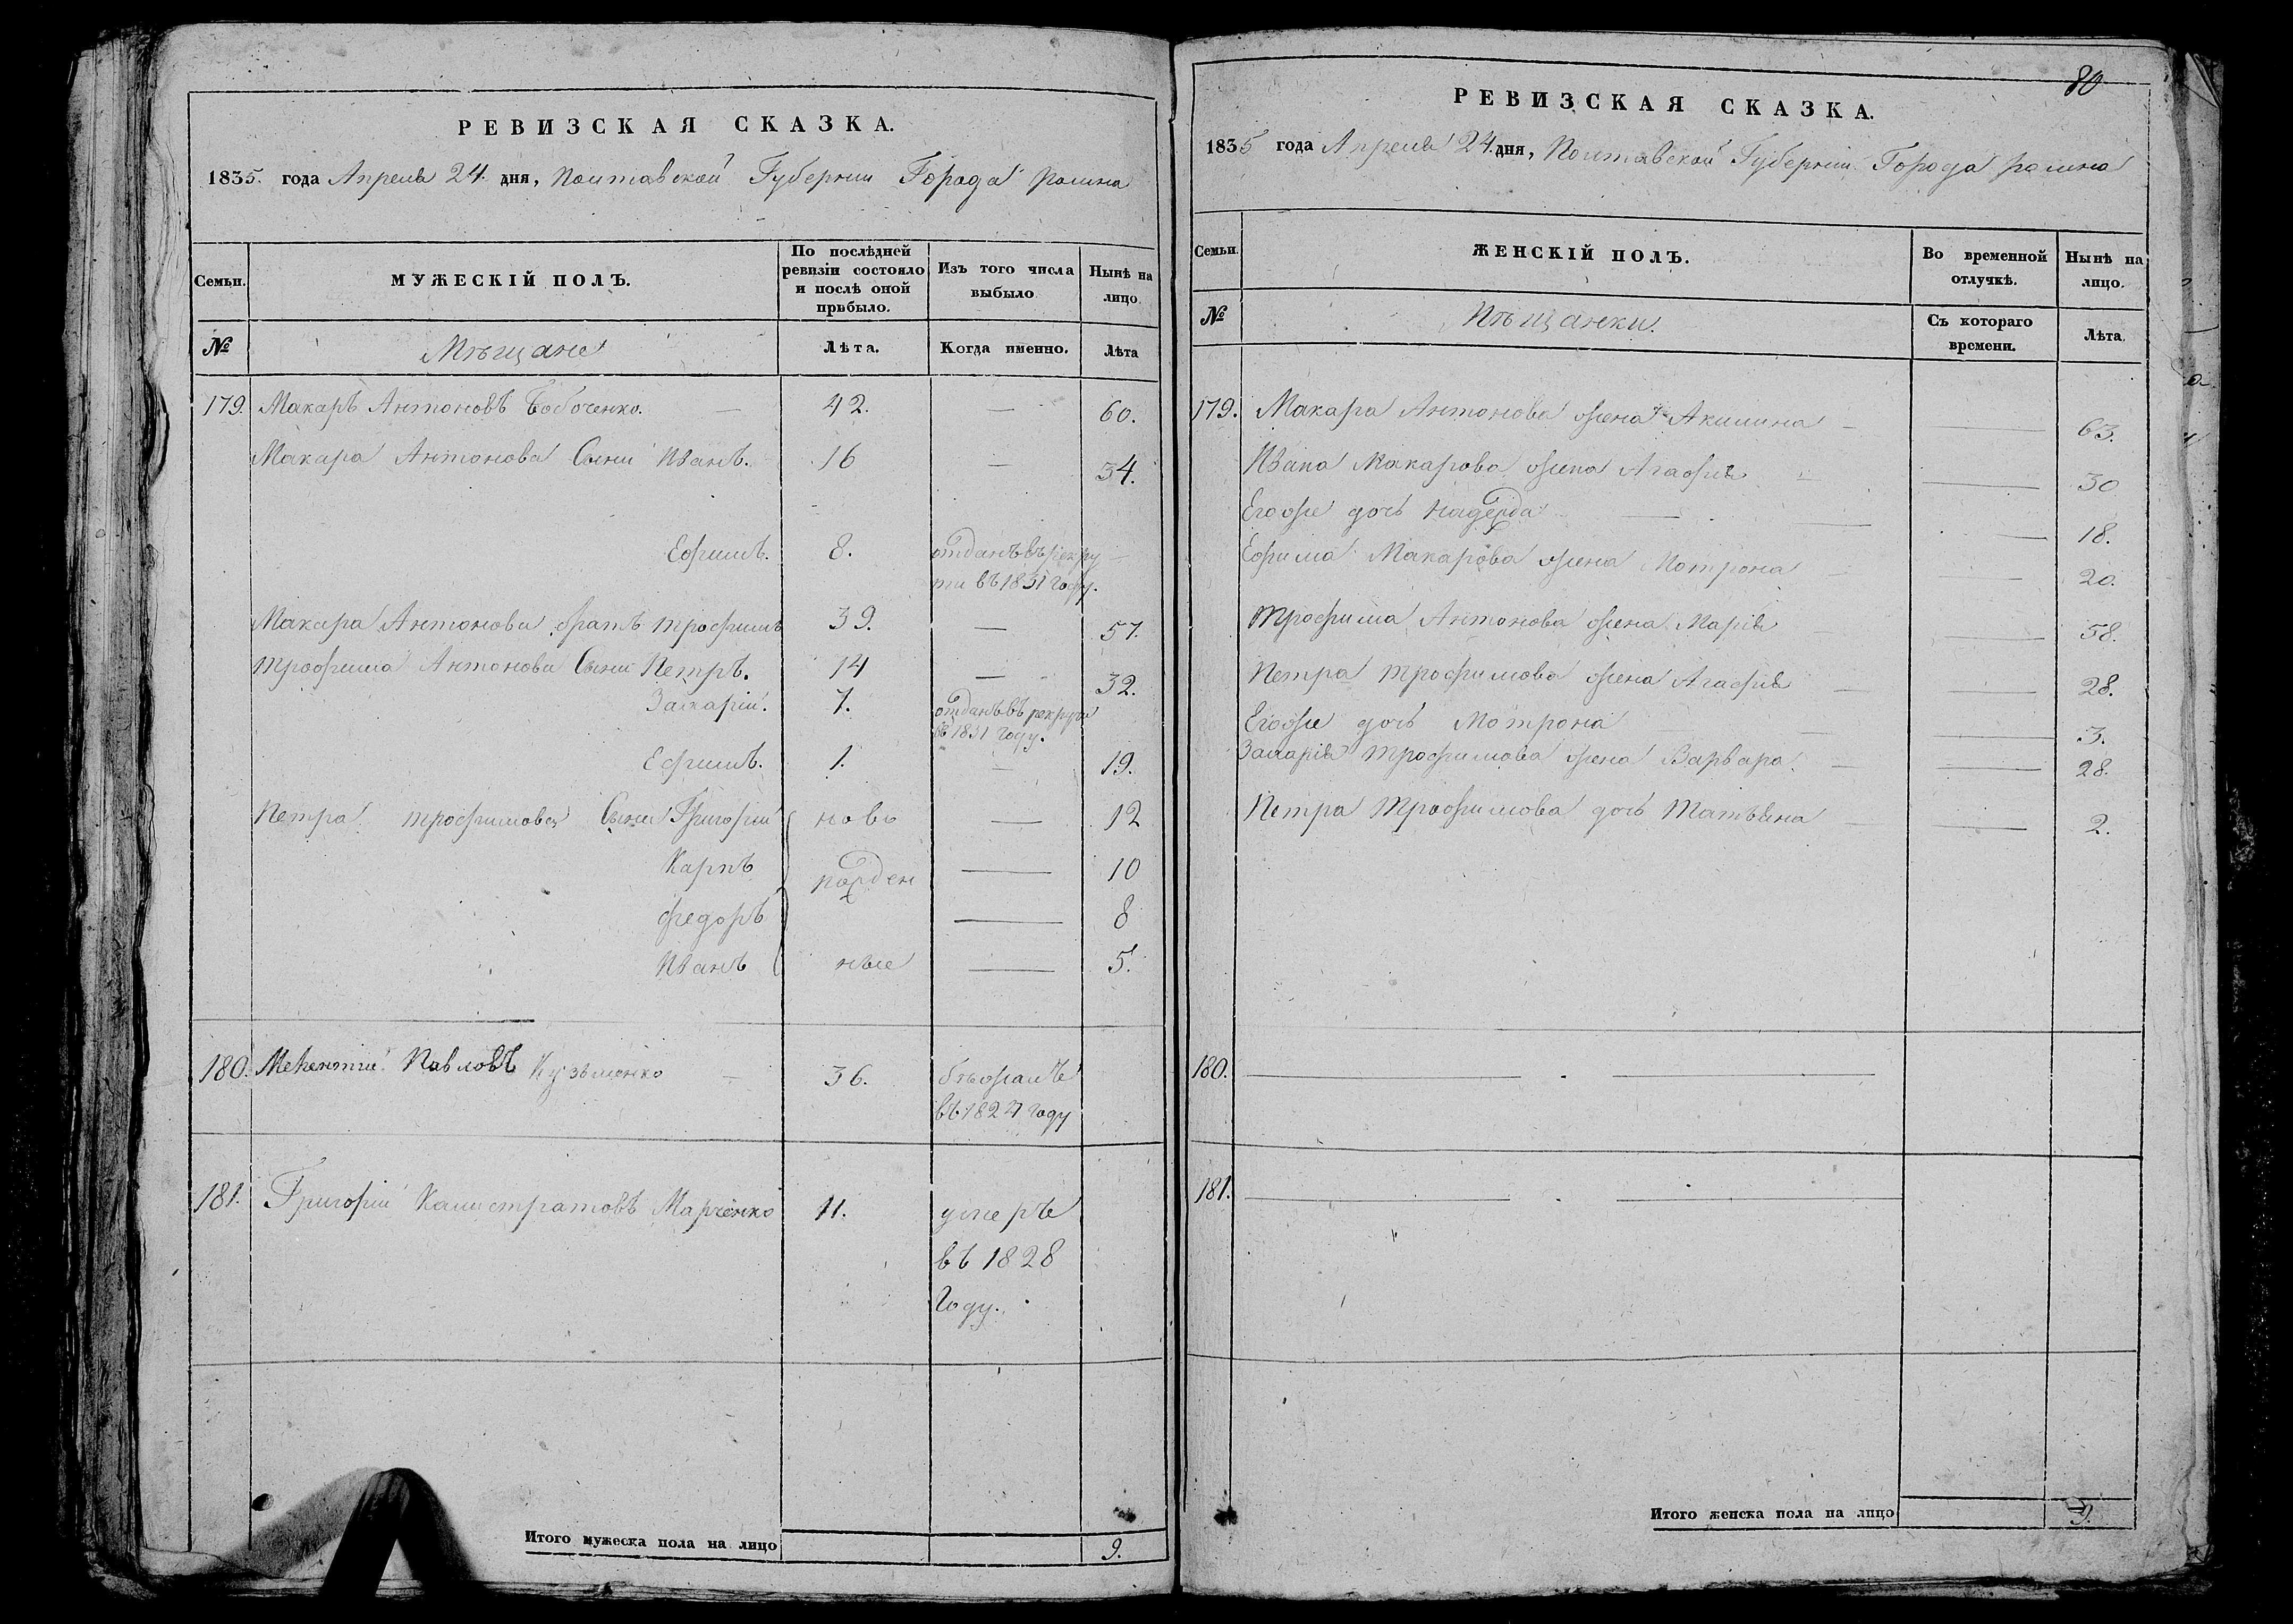 РЕВИЗСКАЯ СКАЗКА.
1835. года Апреля 24. дня, Полтавской Губернии Города Ромна
Семьи.
МУЖЕСКІЙ ПОЛЪ.
По послѣдней ревизіи состояло и послѣ оной прибыло.
Изъ того числа выбыло
Нынѣ на лицо
№
Мѣщане
Лѣта.
Когда именно.
Лѣта
179. Макаръ Антоновъ Бобоченко. — 42. — 60.
Макара Антонова Сыни Иванъ. 16 — 34.
Ефимъ. 8. отданъ въ рекру
ти въ 1831 году.
Макара Антонова братъ Трофимъ 39. — 57.
Трофима Антонова Сыни Петръ. 14 — 32.
Захарій. 7. отданъ въ рекрути
въ 1831 году.
Ефимъ. 1. — 19.
Петра Трофимова Сыни Григорій ново — 12
Карпъ рожден — 10
Федоръ — 8
Иванъ ные — 5.
180. Павловъ Кузьменко — 36. бѣжалъ
въ 1827 году
181. Григорій Калистратовъ Марченко 11. умеръ
въ 1828
году.
Итого мужеска пола на лицо 9.
80
РЕВИЗСКАЯ СКАЗКА.
1835 года Апреля 24. дня, Полтавской Губерніи Города Ромна
Семьи.
ЖЕНСКІЙ ПОЛЪ.
Во временной отлучкѣ.
Нынѣ на лицо.
№
Мѣщанки.
Съ котораго времени.
Лѣта.
179. Макара Антонова жена Акилина — 63.
Ивана Макарова жена Агафія — 30
Егоже дочь Надежда — 18.
Ефима Макарова жена Мотрона — 20.
Трофима Антонова жена Марія — 58.
Петра Трофимова жена Агафія — 28.
Егоже дочь Мотрона — 3.
Захарія Трофимова жена Варвара. — 28.
Петра Трофимова дочь Татьяна — 2.
180. —
181. —
Итого женска пола на лицо 9.